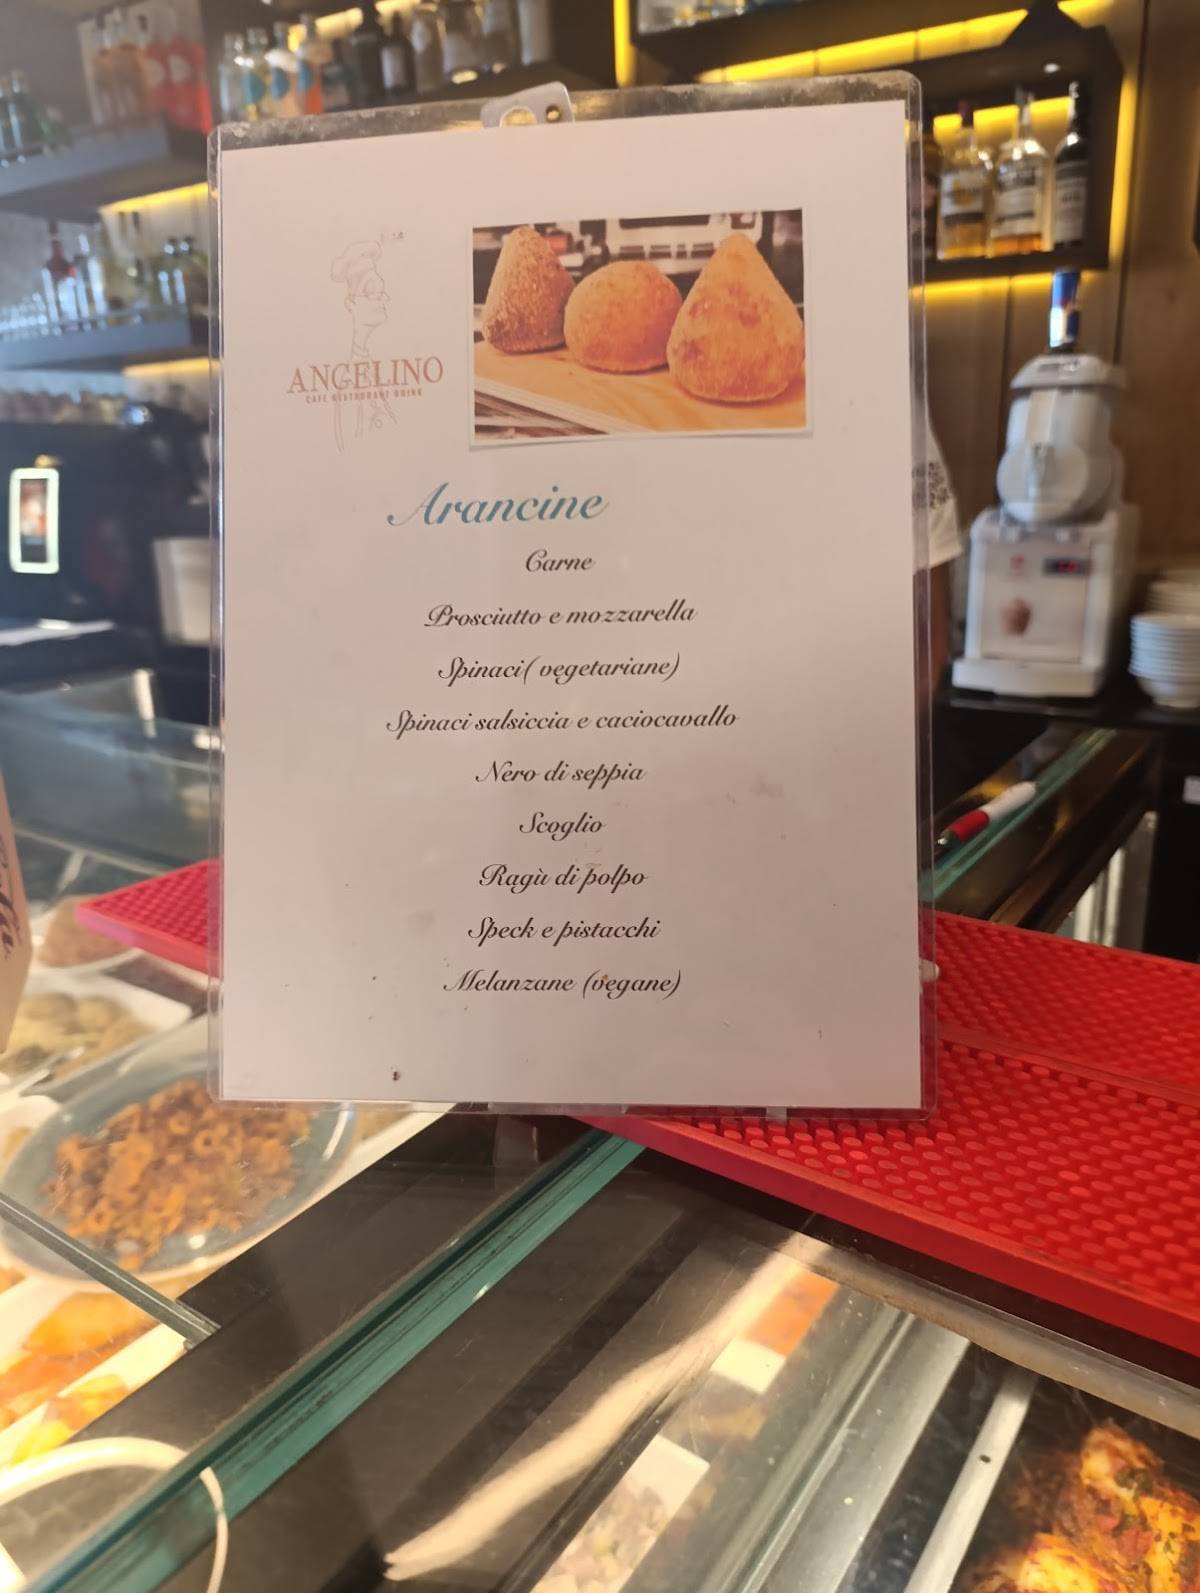 ANGELINO
CAFE RESTAURANT DRINK
Arancine
Carne
Prosciutto e mozzarella
Spinaci( vegetariane)
Spinaci salsiccia e caciocavallo
Nero di seppia
Scoglio
Ragù di polpo
Speck e pistacchi
Melanzane (vegane)